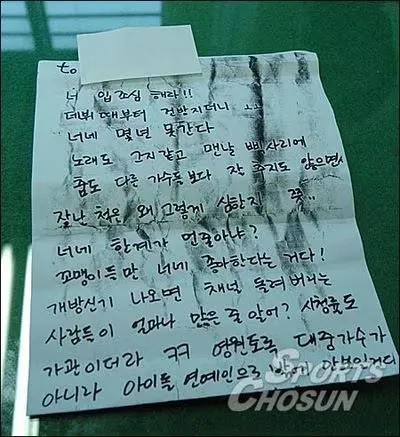 to
너 입조심 해라!!
데뷔 때부터 건방지더니 ㅗㅗ
너네 몇년 못간다
노래도 그지같고 맨날 삑사리에
춤도 다른 가수들보다 잘 추지도 않으면서
잘난 척은 왜 그렇게 심한지 쯧..
너네 한계가 먼줄아냐?
꼬맹이들만 너네 좋아한다는 거다!
개방신기 나오면 채널 돌려버리는
사람들이 얼마나 많은 줄 알어? 시청률도
가관이더라 ㅋㅋ 영원토록 대중가수가
아니라 아이돌 연예인으로 밖에
SPORTS
CHOSUN